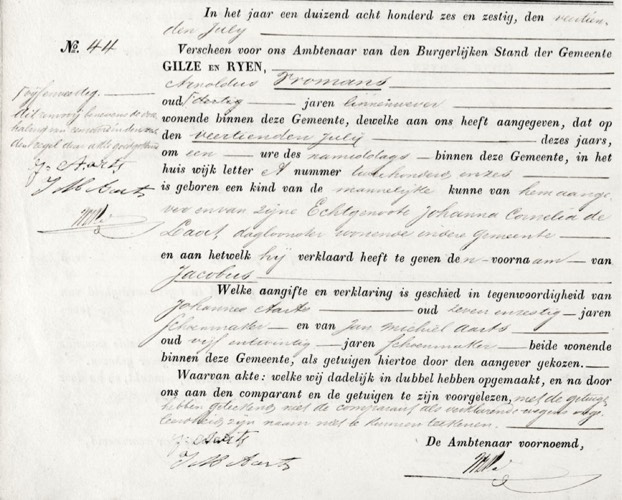 In het jaar een duizend acht honderd zes en zestig, den veertien-
den July
No. 44
Verscheen voor ons Ambtenaar van den Burgerlijken Stand der Gemeente
GILZE EN RYEN,
Arnoldus Fromans
oud dertig jaren linnenwever
wonende binnen deze Gemeente, dewelke aan ons heeft aangegeven, dat op
den veertienden July dezes jaars,
om een ure des namiddags binnen deze Gemeente, in het
huis wijk letter A nummer tweehonderd en zes
is geboren een kind van de mannelijke kunne van hem aange-
ver en van zijne Echtgenoote Johanna Cornelia de
dagloonster wonende in deze gemeente
en aan hetwelk hij verklaard heeft te geven de n voornaam van
Jacobus
Welke aangifte en verklaring is geschied in tegenwoordigheid van
Johannes Aarts oud zeven en zestig jaren
schoenmaker en van Jan Michiel Aarts
oud vijf en twintig jaren schoenmaker beide wonende
binnen deze Gemeente, als getuigen hiertoe door den aangever gekozen.
Waarvan akte: welke wij dadelijk in dubbel hebben opgemaakt, en na door
ons aan den comparant en de getuigen te zijn voorgelezen, met de getuigen
hebben geteekend, met de comparant als verklarende wegens onge-
leerdheid zijn naam niet te kunnen teekenen.
J. Aarts
J M Aarts
De Ambtenaar voornoemd,
vijf en dertig
J. Aarts
J M Aarts